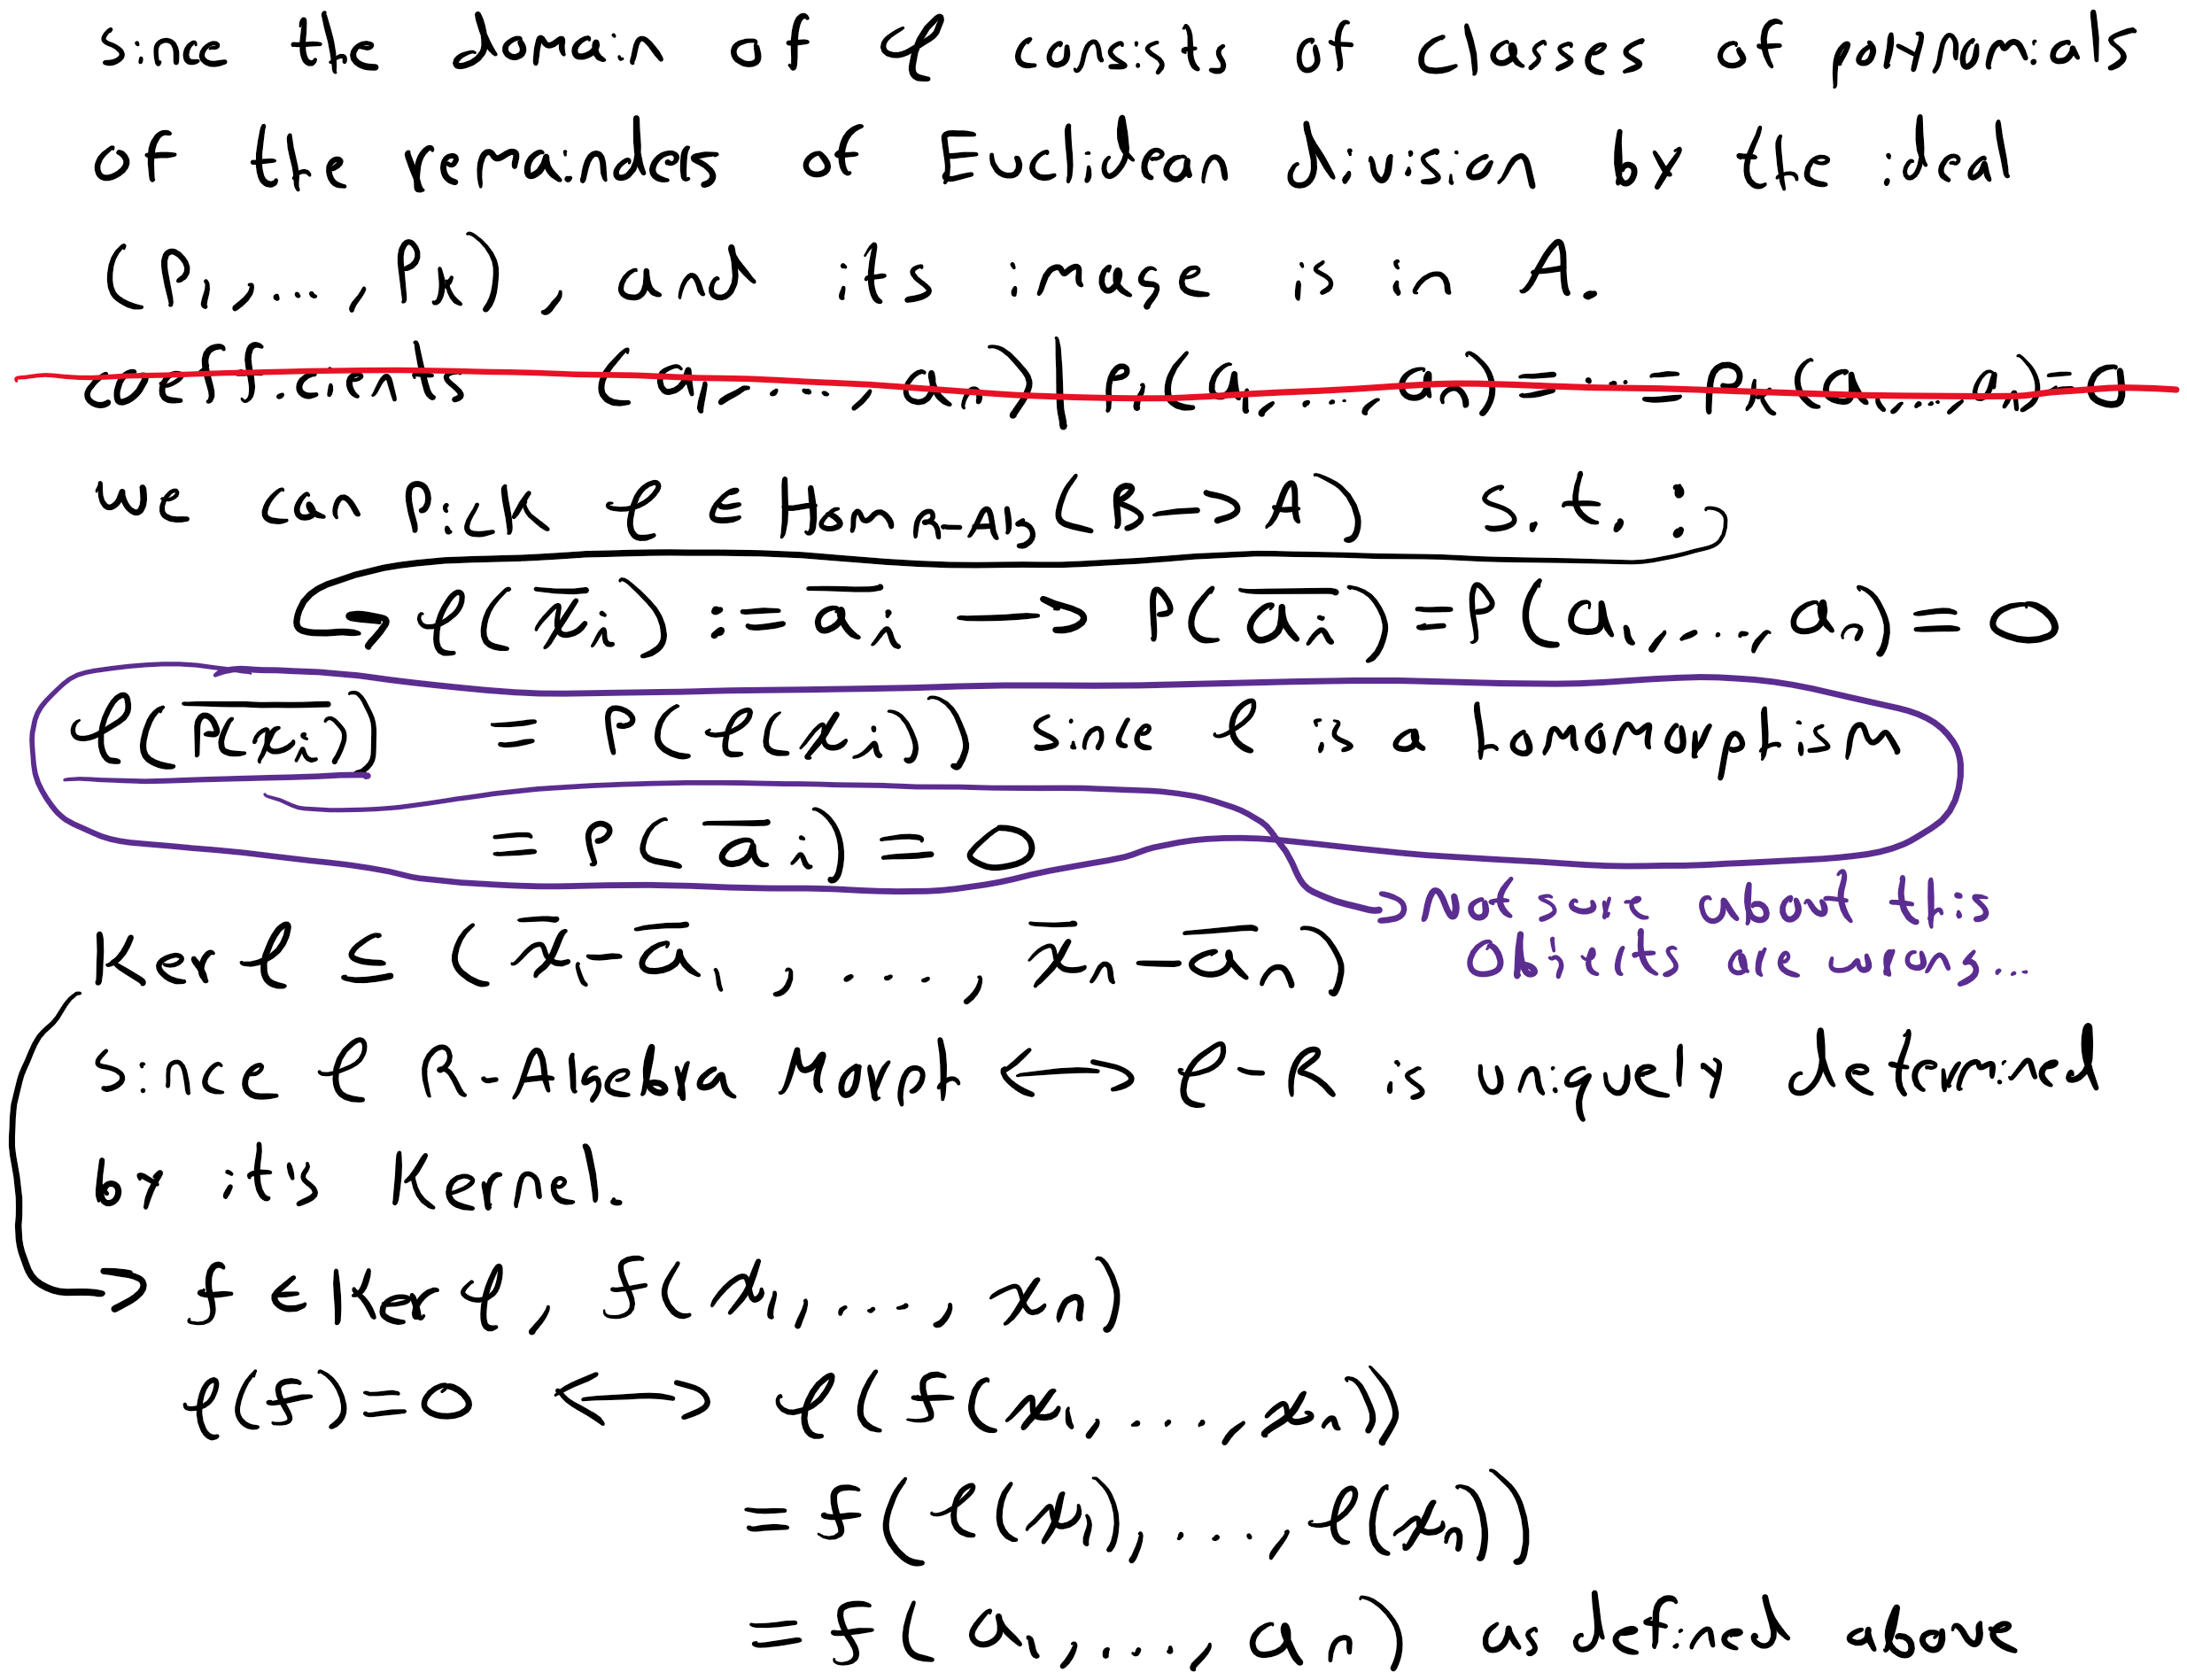 since the domain of φ consists of classes of polynomials
of the remainders of Euclidean division by the ideal
(P₁,...,Pₖ), and its image is in A.
coefficients (a₁,...,aₙ) | P₁(a₁,...,aₙ)=...=Pₖ(a₁,...,aₙ)=0
we can pick φ ∈ Hom_{R-Alg}(B->A) s.t. :
↪ φ(x̄ᵢ) := āᵢ → P(āᵢ)=P(a₁,...,aₙ)=0
φ(\overline{P(xᵢ)}) = P(φ(xᵢ)) since φ is a homomorphism
= P(āᵢ)=0
→ Not sure about this
objects are wrong...
Ker φ ≤ (x̄₁-ā₁,...,x̄ₙ-āₙ)
since φ R-Algebra Morph ⟷ φ-R is uniquely determined
by it's Kernel.
→ f ∈ Ker φ, f(x₁,...,xₙ)
φ(f)=0 ⟷ φ(f(x₁,...,xₙ))
= f(φ(x₁),...,φ(xₙ))
= f(a₁,...,aₙ) as defined above